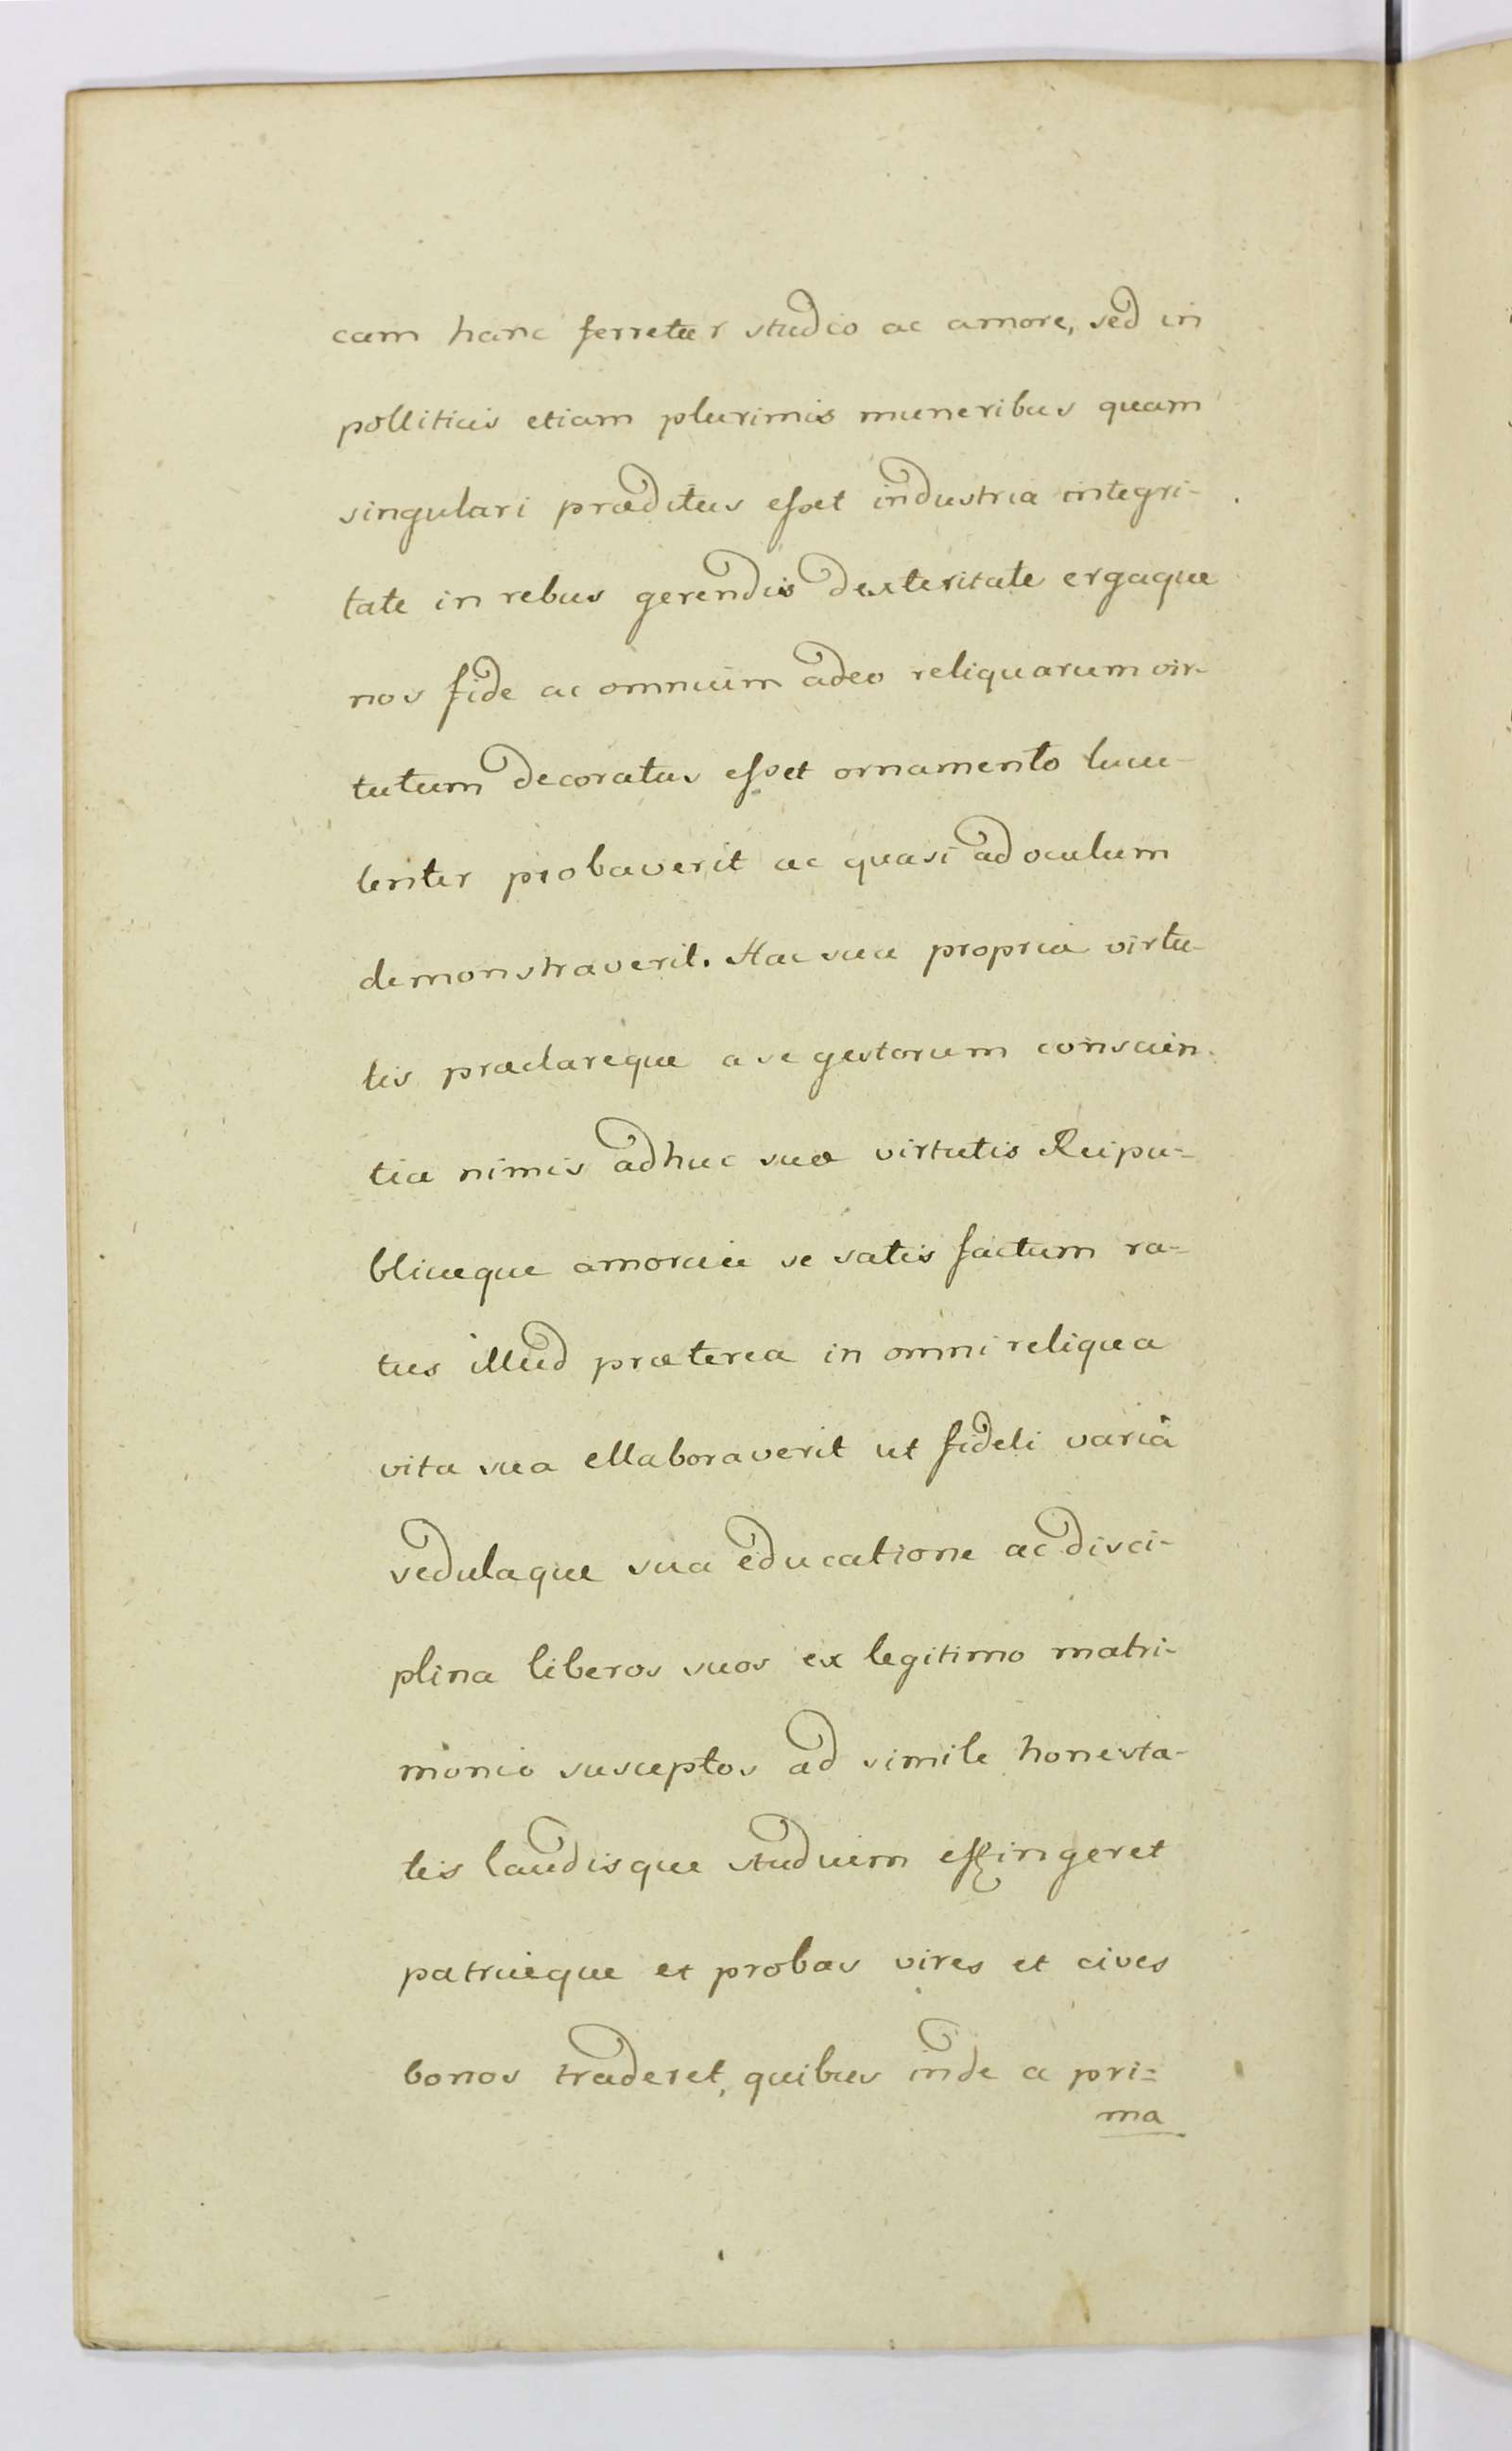 cam hanc ferretur studio ac amore, sed in
polliticis etiam plurimis muneribus quam
singulari præditus esset industria integri-
tate in rebus gerendis dexteritate ergaque
nos fide ac omnium adeo reliquarum vir-
tutum decoratus esset ornamento lucu-
lenter probaverit ac quasi ad oculum
demonstraverit. Hac sua propria virtu-
tis præclareque a se gestorum conscien-
tia nimis adhuc suæ virtutis Reipu-
blicæque amori se satis factum ra-
tus illud præterea in omni reliqua
vita sua ellaboraverit ut fideli varia
sedulaque sua educatione ac disci-
plina liberos suos ex legitimo matri-
monio susceptos ad simile honesta-
tis laudisque studium effingeret
patriæque et probas vires et cives
bonos traderet, quibus inde a pri-
ma